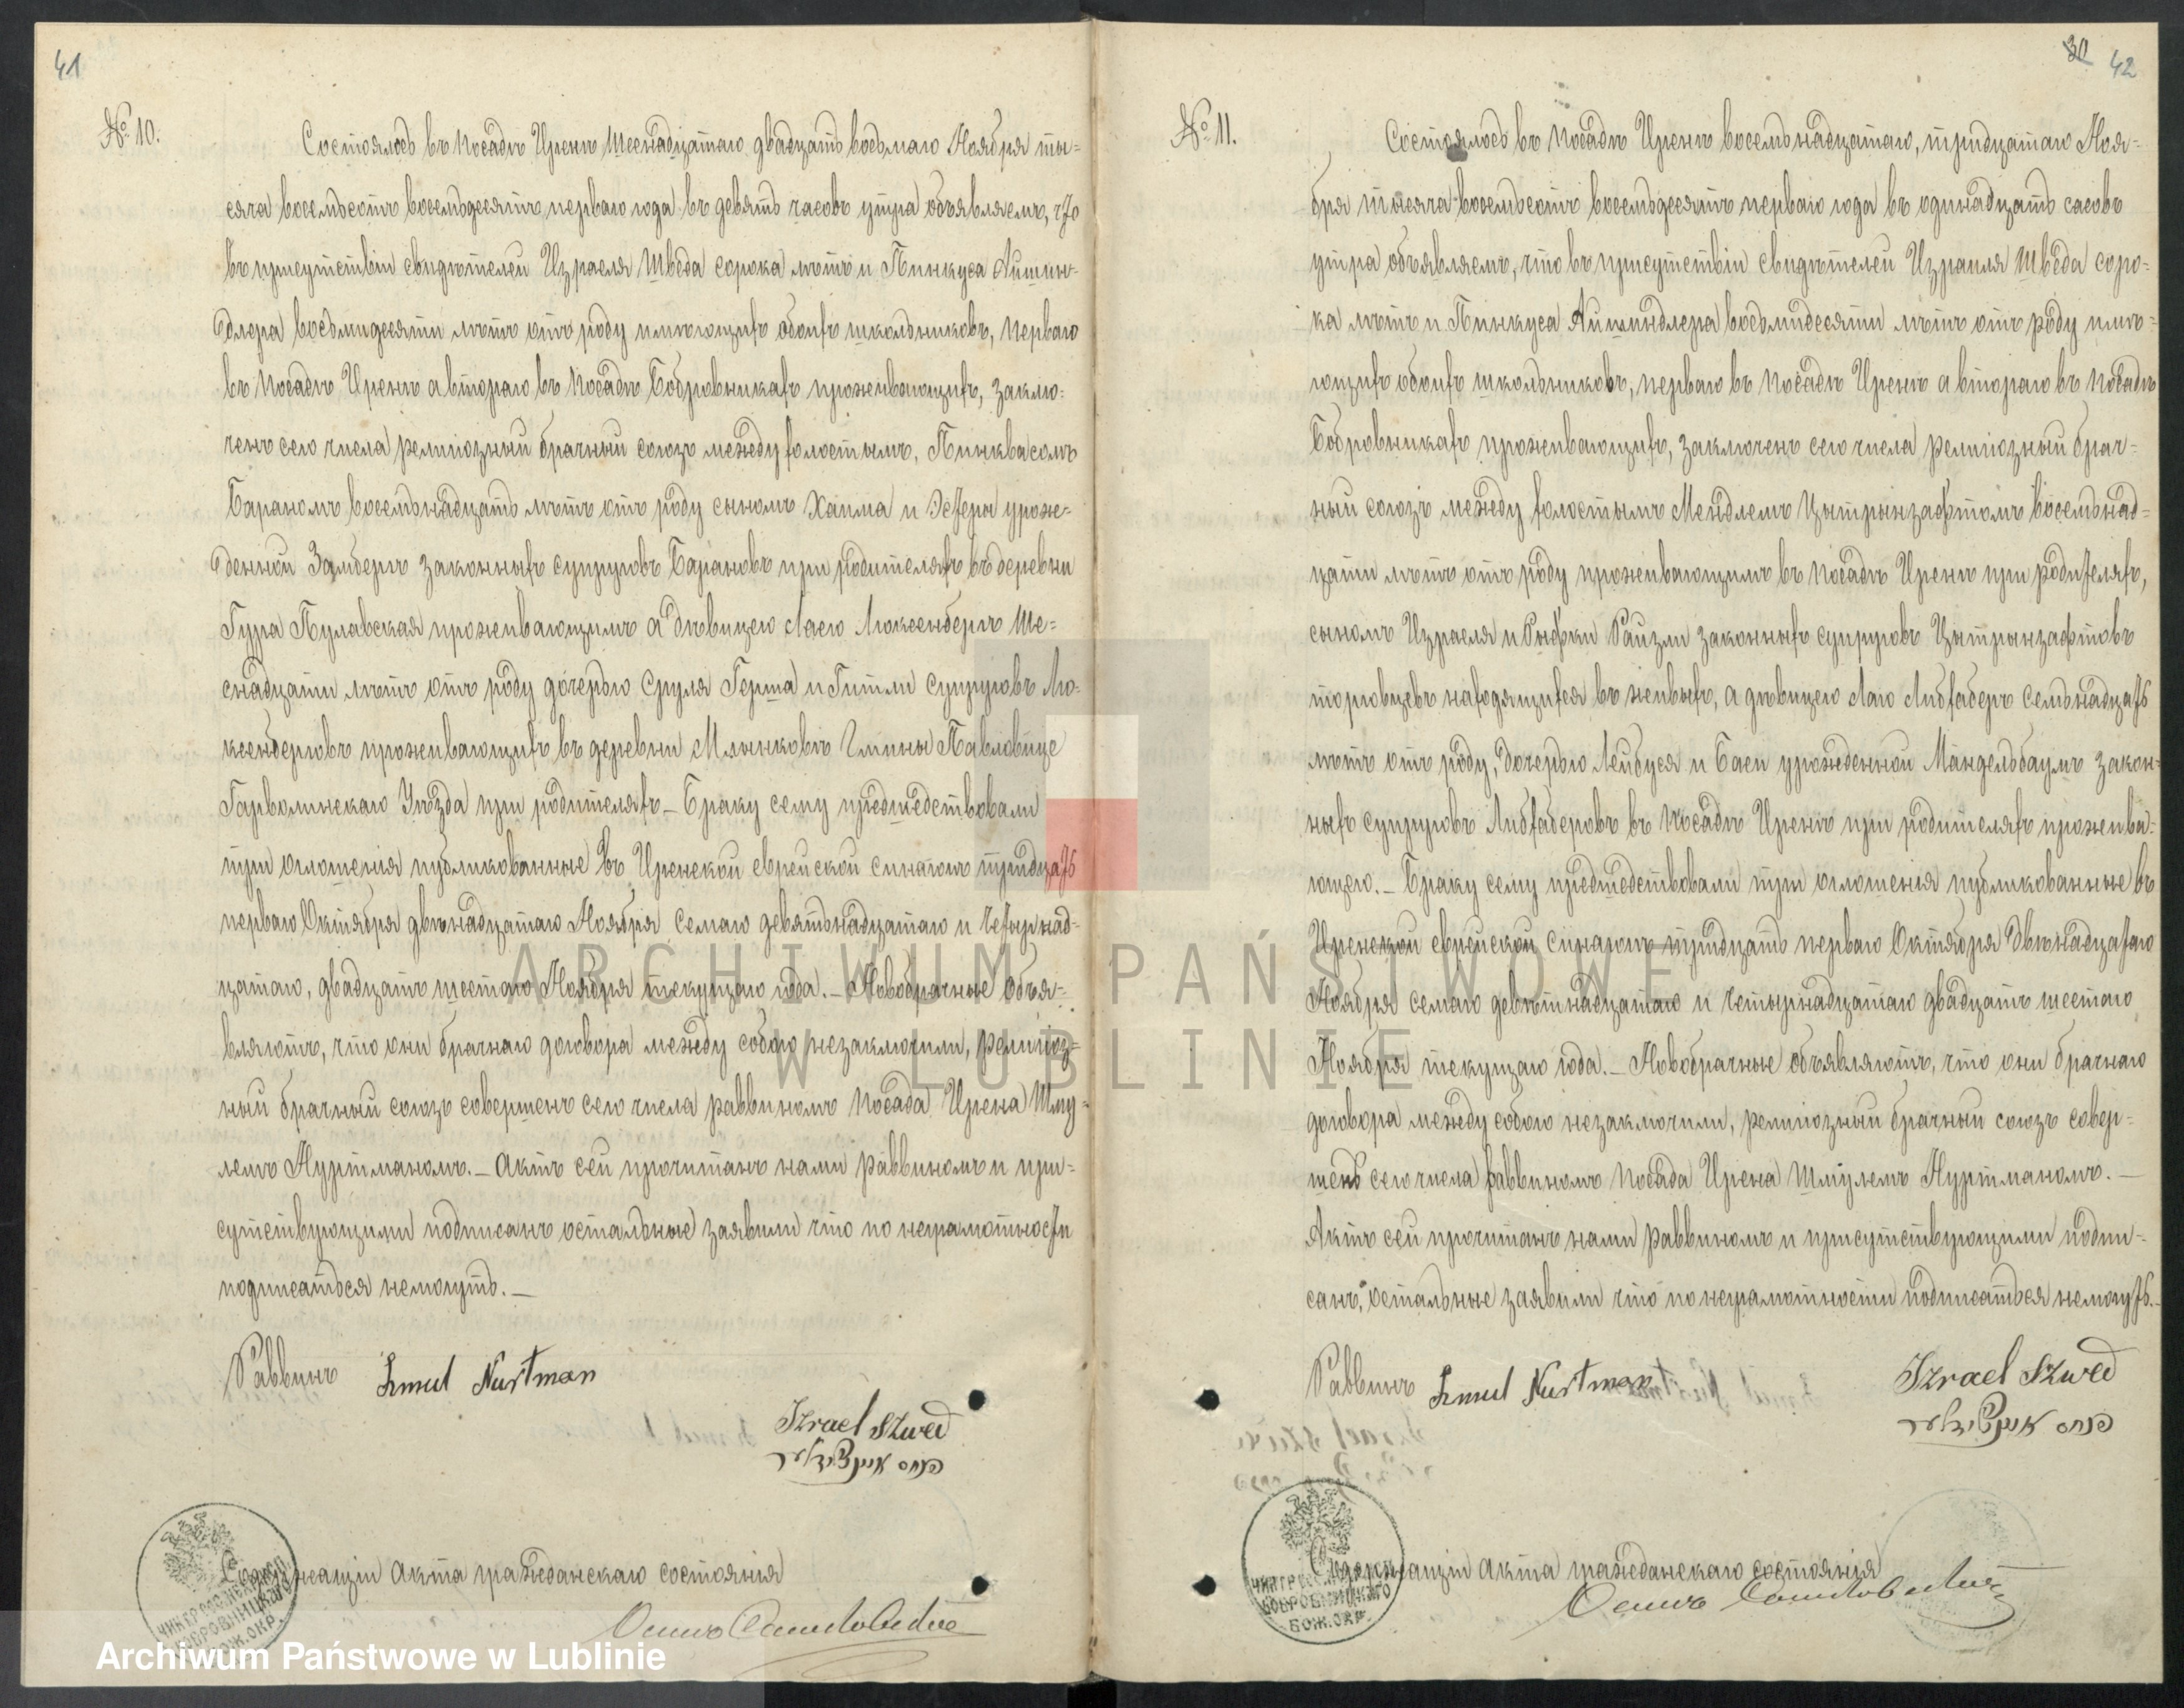 41
№ 10.
Состоялось въ Посадѣ Иренѣ Шеснадцатаго двадцать восьмаго Ноября ты-
сяча восемьсотъ восемьдесятъ перваго года въ девять часовъ утра объявляемъ, что
въ присутствіи свидѣтелей Израеля Шведа сорока лѣтъ и Пинкуса Айшин-
длера восьмидесяти лѣтъ отъ роду имѣющихъ обоихъ школьниковъ, перваго
въ Посадѣ Иренѣ а втораго въ Посадѣ Бобровникахъ проживающихъ, заклю-
ченъ сего числа религіозный брачный союзъ между холостымъ, Пинквасомъ
Бараномъ восемьнадцать лѣтъ отъ роду сыномъ Хаима и Эстеры урож-
денной Замбергъ законныхъ супруговъ Барановъ при родителяхъ въ деревни
Гура Пулавская проживающимъ а дѣвицею Лаею Люксенбергъ Ше-
снадцати лѣтъ отъ роду дочерью Сруля Герша и Гитли супруговъ Лю-
ксенберговъ проживающихъ въ деревни Млынковѣ Гмины Павловице
Гарволинскаго Уѣзда при родителяхъ – Браку сему предшедствовали
три оглошенія публикованные въ Иренской еврейской синагогѣ тридцать
перваго Октября двѣнадцатаго Ноября семаго девятьнадцатаго и четырнад-
цатаго, двадцать шестаго Ноября текущаго года. – Новобрачные объя-
вляютъ, что они брачнаго договора между собою незаключили, религіоз-
ный брачный союзъ совершенъ сего числа раввиномъ Посада Ирена Шму-
лемъ Нуртманомъ. – Актъ сей прочитанъ нами раввиномъ и при-
сутствующими подписанъ остальные заявили что по неграмотности
подписаться немогутъ. –
Раввинъ Szmul Nurtman
Izrael Szwed
פנחס אייזשינדלער
Содержащій Акта гражданскаго состоянія
30 42
№ 11.
Состоялось въ Посадѣ Иренѣ восемьнадцатаго, тридцатаго Ноя-
бря тысяча восемьсотъ восемьдесятъ перваго года въ одинадцать часовъ
утра объявляемъ, что въ присутствіи свидѣтелей Израиля Шведа соро-
ка лѣтъ и Пинкуса Айшиндлера восьмидесяти лѣтъ отъ роду имѣ-
ющихъ обоихъ школьниковъ, перваго въ Посадѣ Иренѣ а втораго въ Посадѣ
Бобровникахъ проживающихъ, заключенъ сего числа религіозный брач-
ный союзъ между холостымъ Мендлемъ Цытрынзафтомъ восемьнад-
цати лѣтъ отъ роду проживающимъ въ Посадѣ Иренѣ при родителяхъ,
сыномъ Израеля и Рыфки Райзли законныхъ супруговъ Цытрынзафтовъ
торговцевъ находящихся въ живыхъ, а дѣвицею Лаю Либхаберъ семьнадцать
лѣтъ отъ роду, дочерью Лейбуся и Баси урожденной Мандельбаумъ закон-
ныхъ супруговъ Либхаберовъ въ Посадѣ Иренѣ при родителяхъ прожива-
ющею. – Браку сему предшедствовали три оглошенія публикованные въ
Иренской еврейской синагогѣ тридцать перваго Октября двѣнадцатаго
Ноября семаго девѣтнадцатаго и четырнадцатаго двадцать шестаго
Ноября текущаго года. – Новобрачные объявляютъ, что они брачнаго
договора между собою незаключили, религіозный брачный союзъ совер-
шенъ сего числа раввиномъ Посада Ирена Шмулемъ Нуртманомъ. –
Актъ сей прочитанъ нами раввиномъ и присутствующими подпи-
санъ, остальные заявили что по неграмотности подписаться немогутъ. –
Раввинъ Szmul Nurtman
Izrael Szwed
פנחס אייזשינדלער
Содержащій Акта гражданскаго состоянія
БОЖ. ОКР.
ARCHIWUM PAŃSTWOWE
W LUBLINIE
Archiwum Państwowe w Lublinie